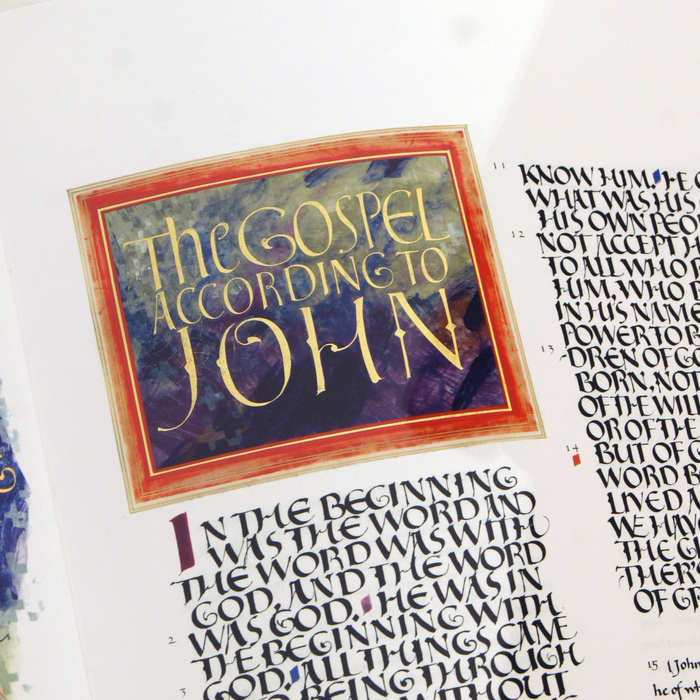 The GOSPEL
ACCORDING TO
JOHN
IN THE BEGINNING
WAS THE WORD AND
THE WORD WAS WITH
GOD, AND THE WORD
WAS GOD. HE WAS IN
2
THE BEGINNING WITH
GOD. ALL THINGS CAME
3
BEING THROUGH
WITHOUT
11
KNOW HIM. HE
WHAT WAS HIS
HIS OWN
12
NOT ACCEPT
TO ALL WHO
HIM, WHO
IN HIS NAME
POWER TO
13
DREN OF
BORN, NOT
OF THE WILL
OR OF THE
14
BUT OF
WORD
LIVED
WE HAVE
THE
OF
15 (John
he of